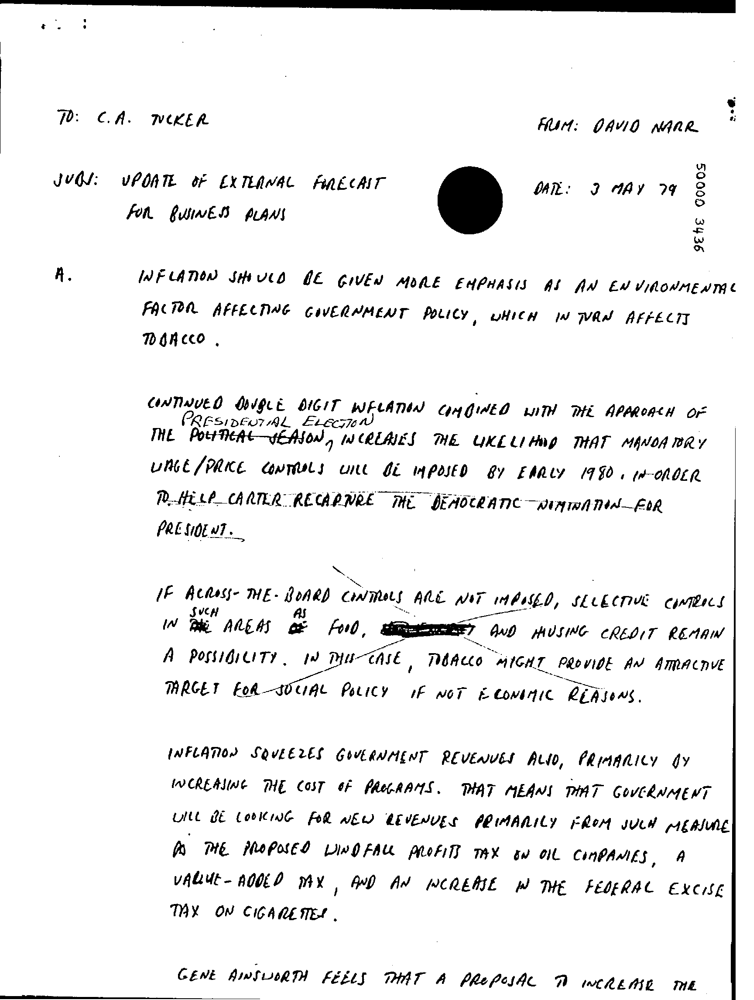 TO: C.A. TUCKER
FROM: DAVID NARR
SUBJ: UPDATE OF EXTERNAL FORECAST
FOR BUSINESS PLANS
DATE: 3 MAY 79
50000 3436
A. INFLATION SHOULD BE GIVEN MORE EMPHASIS AS AN ENVIRONMENTAL
FACTOR AFFECTING GOVERNMENT POLICY, WHICH IN TURN AFFECTS
TOBACCO.
CONTINUED DOUBLE DIGIT INFLATION COMBINED WITH THE APPROACH OF
PRESIDENTIAL ELECTION
THE POLITICAL SEASON, INCREASES THE LIKELIHOOD THAT MANDATORY
WAGE/PRICE CONTROLS WILL BE IMPOSED BY EARLY 1980. IN ORDER
TO HELP CARTER RECAPTURE THE DEMOCRATIC NOMINATION FOR
PRESIDENT.
IF ACROSS-THE-BOARD CONTROLS ARE NOT IMPOSED, SELECTIVE CONTROLS
SUCH AS
IN THE AREAS OF FOOD, AND HOUSING CREDIT REMAIN
A POSSIBILITY. IN THIS CASE, TOBACCO MIGHT PROVIDE AN ATTRACTIVE
TARGET FOR SOCIAL POLICY IF NOT ECONOMIC REASONS.
INFLATION SQUEEZES GOVERNMENT REVENUES ALSO, PRIMARILY BY
INCREASING THE COST OF PROGRAMS. THAT MEANS THAT GOVERNMENT
WILL BE LOOKING FOR NEW REVENUES PRIMARILY FROM SUCH MEASURE
AS THE PROPOSED WINDFALL PROFITS TAX ON OIL COMPANIES, A
VALUE-ADDED TAX, AND AN INCREASE IN THE FEDERAL EXCISE
TAX ON CIGARETTES.
GENE AINSWORTH FEELS THAT A PROPOSAL TO INCREASE THE